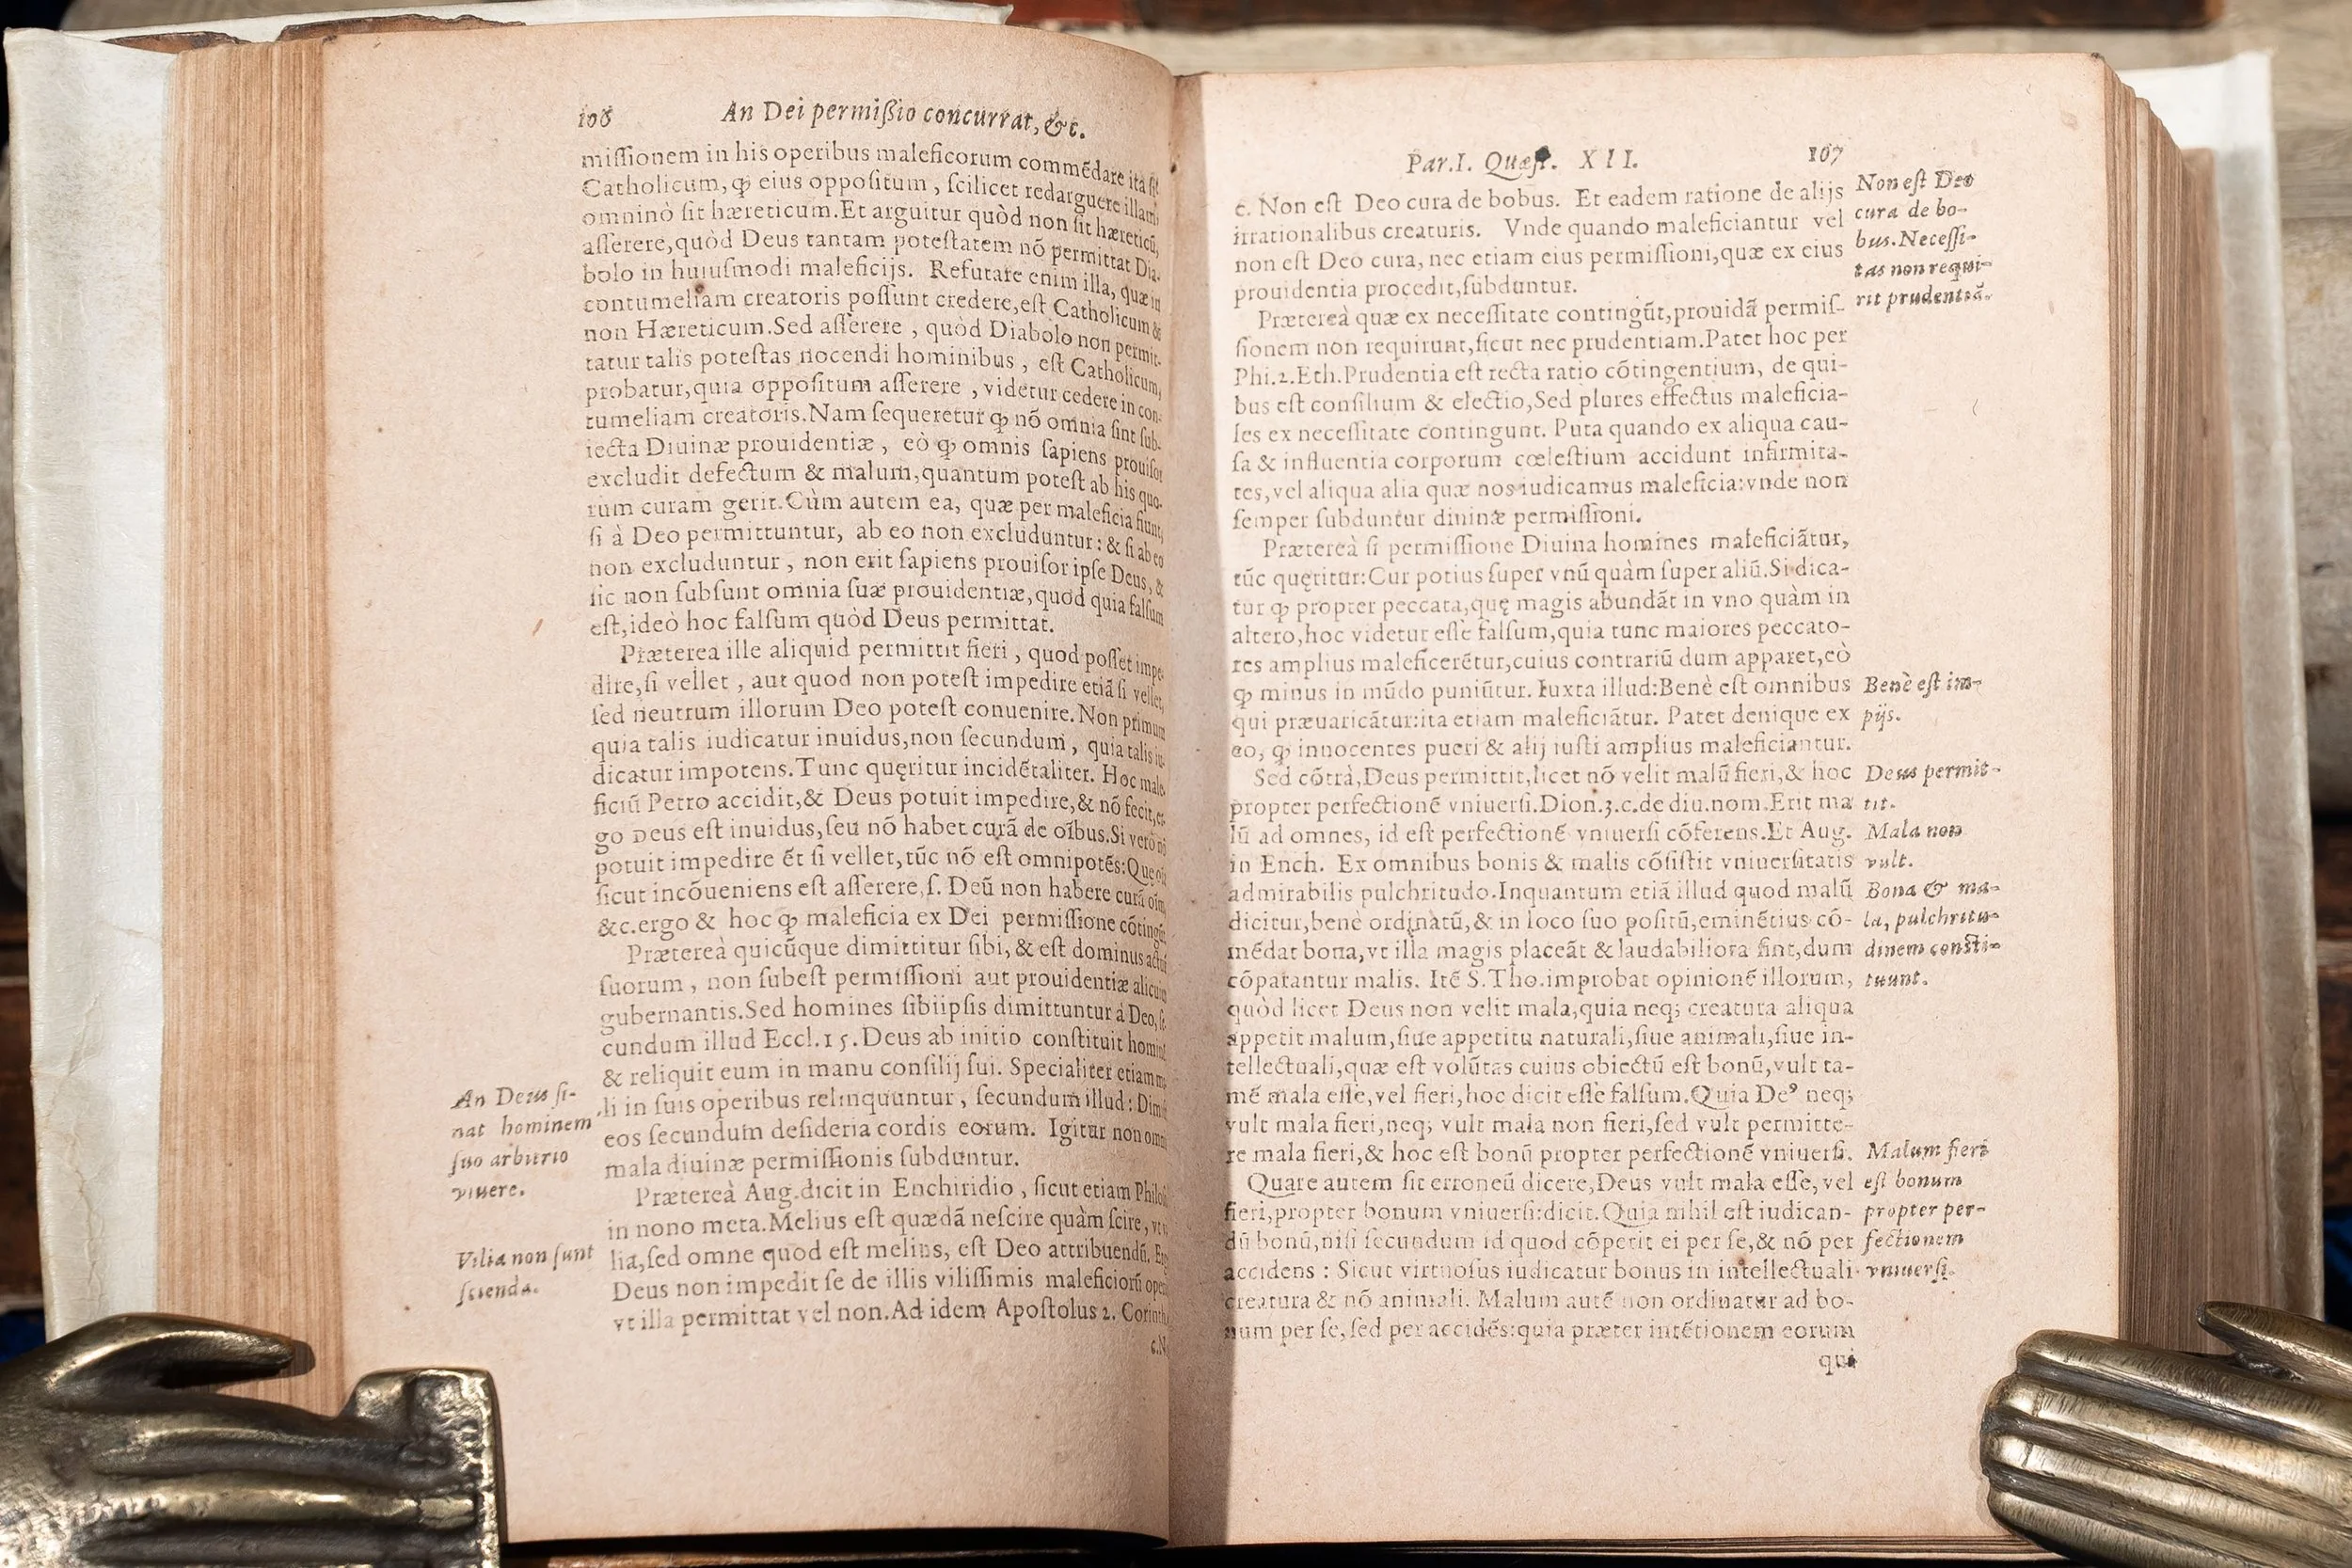 108 An Dei permißio concurrat, &c.
missionem in his operibus maleficorum commẽdare ita sit
Catholicum, ꝙ eius oppositum, scilicet redarguere illam,
omninò sit hæreticum. Et arguitur quòd non sit hæreticũ,
asserere, quòd Deus tantam potestatem nõ permittat Dia-
bolo in huiusmodi maleficijs. Refutare enim illa, quæ in
contumeliam creatoris possunt credere, est Catholicum &
non Hæreticum. Sed asserere, quòd Diabolo non permit-
tatur talis potestas nocendi hominibus, est Catholicum,
probatur, quia oppositum asserere, videtur cedere in con-
tumeliam creatoris. Nam sequeretur ꝙ nõ omnia sint sub-
iecta Diuinæ prouidentiæ, eò ꝙ omnis sapiens prouisor
excludit defectum & malum, quantum potest ab his quo-
rum curam gerit. Cùm autem ea, quæ per maleficia fiunt,
si à Deo permittuntur, ab eo non excluduntur: & si ab eo
non excluduntur, non erit sapiens prouisor ipse Deus, &
sic non subsunt omnia suæ prouidentiæ, quod quia falsum
est, ideò hoc falsum quòd Deus permittat.
Præterea ille aliquid permittit fieri, quod posset impe-
dire, si vellet, aut quod non potest impedire etiã si vellet,
sed neutrum illorum Deo potest conuenire. Non primum
quia talis iudicatur inuidus, non secundum, quia talis iu-
dicatur impotens. Tunc quęritur incidẽtaliter. Hoc male-
ficiũ Petro accidit, & Deus potuit impedire, & nõ fecit, er-
go Deus est inuidus, seu nõ habet curã de oĩbus. Si verò nõ
potuit impedire ẽt si vellet, tũc nõ est omnipotẽs: Que
sicut incõueniens est asserere, s. Deũ non habere curã
&c. ergo & hoc ꝙ maleficia ex Dei permissione cõtingũt
Prætereà quicũque dimittitur sibi, & est dominus
suorum, non subest permissioni aut prouidentiæ alicuius
gubernantis. Sed homines sibiipsis dimittuntur à Deo, se-
cundum illud Eccl. 15. Deus ab initio constituit
& reliquit eum in manu consilij sui. Specialiter etiam
li in suis operibus relinquuntur, secundum illud:
eos secundum desideria cordis eorum. Igitur non
mala diuinæ permissionis subduntur.
Prætereà Aug. dicit in Enchiridio, sicut etiam
in nono meta. Melius est quædã nescire quàm scire,
lia, sed omne quod est melius, est Deo attribuendũ.
Deus non impedit se de illis vilissimis maleficiorũ
vt illa permittat vel non. Ad idem Apostolus 2.
An Deus si-
nat hominem
suo arbitrio
viuere.
Vilia non sunt
scienda.
Par. I. Quæst. XII. 107
c. Non est Deo cura de bobus. Et eadem ratione de alijs
irrationalibus creaturis. Vnde quando maleficiantur vel
non est Deo cura, nec etiam eius permissioni, quæ ex eius
prouidentia procedit, subduntur.
Prætereà quæ ex necessitate contingũt, prouidã permis-
sionem non requirunt, sicut nec prudentiam. Patet hoc per
Phi. 2. Eth. Prudentia est recta ratio cõtingentium, de qui-
bus est consilium & electio, Sed plures effectus maleficia-
les ex necessitate contingunt. Puta quando ex aliqua cau-
sa & influentia corporum cœlestium accidunt infirmita-
tes, vel aliqua alia quæ nos iudicamus maleficia: vnde non
semper subduntur diuinæ permissioni.
Prætereà si permissione Diuina homines maleficiãtur,
tũc quęritur: Cur potius super vnũ quàm super aliũ. Si dica-
tur ꝙ propter peccata, quę magis abundãt in vno quàm in
altero, hoc videtur esse falsum, quia tunc maiores peccato-
res amplius maleficerẽtur, cuius contrariũ dum apparet, eò
ꝙ minus in mũdo puniũtur. Iuxta illud: Benè est omnibus
qui præuaricãtur: ita etiam maleficiãtur. Patet denique ex
eo, ꝙ innocentes pueri & alij iusti amplius maleficiantur.
Sed cõtrà, Deus permittit, licet nõ velit malũ fieri, & hoc
propter perfectionẽ vniuersi. Dion. 3. c. de diu. nom. Erit ma
lũ ad omnes, id est perfectionẽ vniuersi cõferens. Et Aug.
in Ench. Ex omnibus bonis & malis cõsistit vniuersitatis
admirabilis pulchritudo. Inquantum etiã illud quod malũ
dicitur, benè ordinatũ, & in loco suo positũ, eminẽtius cõ-
mẽdat bona, vt illa magis placeãt & laudabiliora sint, dum
cõparantur malis. Itẽ S. Tho. improbat opinionẽ illorum,
quòd licet Deus non velit mala, quia neq; creatura aliqua
appetit malum, siue appetitu naturali, siue animali, siue in-
tellectuali, quæ est volũtas cuius obiectũ est bonũ, vult ta-
mẽ mala esse, vel fieri, hoc dicit esse falsum. Quia De⁹ neq;
vult mala fieri, neq; vult mala non fieri, sed vult permitte-
re mala fieri, & hoc est bonũ propter perfectionẽ vniuersi.
Quare autem sit erroneũ dicere, Deus vult mala esse, vel
fieri, propter bonum vniuersi: dicit. Quia nihil est iudican-
dũ bonũ, nisi secundum id quod cõpetit ei per se, & nõ per
accidens: Sicut virtuosus iudicatur bonus in intellectuali
creatura & nõ animali. Malum autẽ non ordinatur ad bo-
num per se, sed per accidẽs: quia præter intẽtionem eorum
qui
Non est Deo
cura de bo-
bus. Necessi-
tas non requi-
rit prudentiã.
Benè est im-
pijs.
Deus permit-
tit.
Mala non
vult.
Bona & ma-
la, pulchritu-
dinem consti-
tuunt.
Malum fieri
est bonum
propter per-
fectionem
vniuersi.